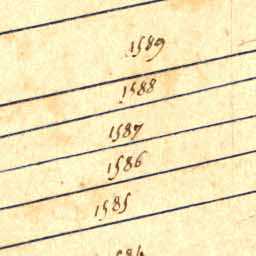 1589
1588
1587
1586
1585